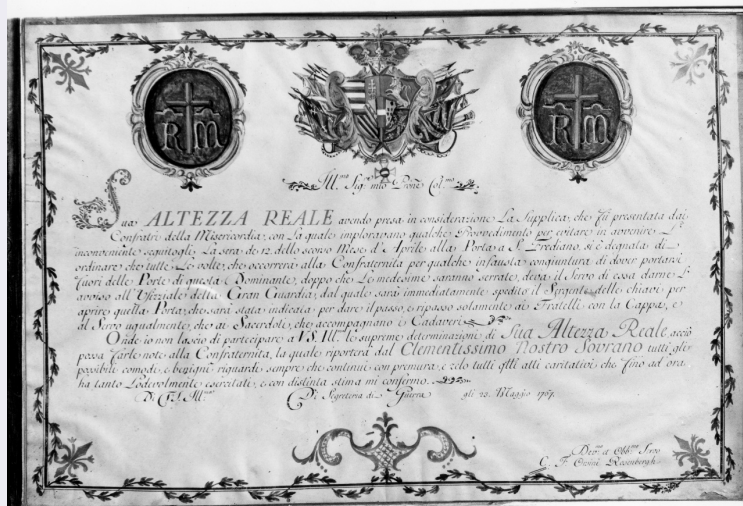 R M
R M
Ill.mo Sig.r mio Prone Col.mo
Sua ALTEZZA REALE avendo presa in considerazione La Supplica, che fù presentata dai
Confratri della Misericordia, con La quale imploravano qualche Provvedimento per evitare in avvenire L'
inconveniente seguitogli La sera de 12. dello scorso Mese d'Aprile alla Porta a S. Frediano, si è degnata di
ordinare che tutte Le volte, che occorrerà alla Confraternita per qualche infausta congiuntura di dover portarsi
fuori delle Porte di questa Dominante, doppo che Le medesime saranno serrate, deva il Servo di essa darne L'
avviso all'Ufiziale della Gran Guardia, dal quale sarà immediatamente spedito il Sergente delle chiavi per
aprire quella Porta, che sarà stata indicata per dare il passo, e ripasso solamente ai Fratelli con la Cappa, e
al Servo ugualmente, che ai Sacerdoti, che accompagnano i Cadaveri
Onde io non lascio di partecipare a VS. Ill.ma le supreme determinazioni di Sua Altezza Reale acciò
possa farle note alla Confraternita, la quale riporterà dal Clementissimo Nostro Sovrano tutti gli
possibili comodi, e benigni riguardi sempre che continui con premura, e zelo tutti gl'atti caritativi che fino ad ora
ha tanto Lodevolmente esercitati, e con distinta stima mi confermo.
Di V.S. Ill.ma Di Segreteria di Guerra gli 23. Maggio 1767.
Dev.mo et Obb.mo Servo
C. F. Orsini Rosenbergh